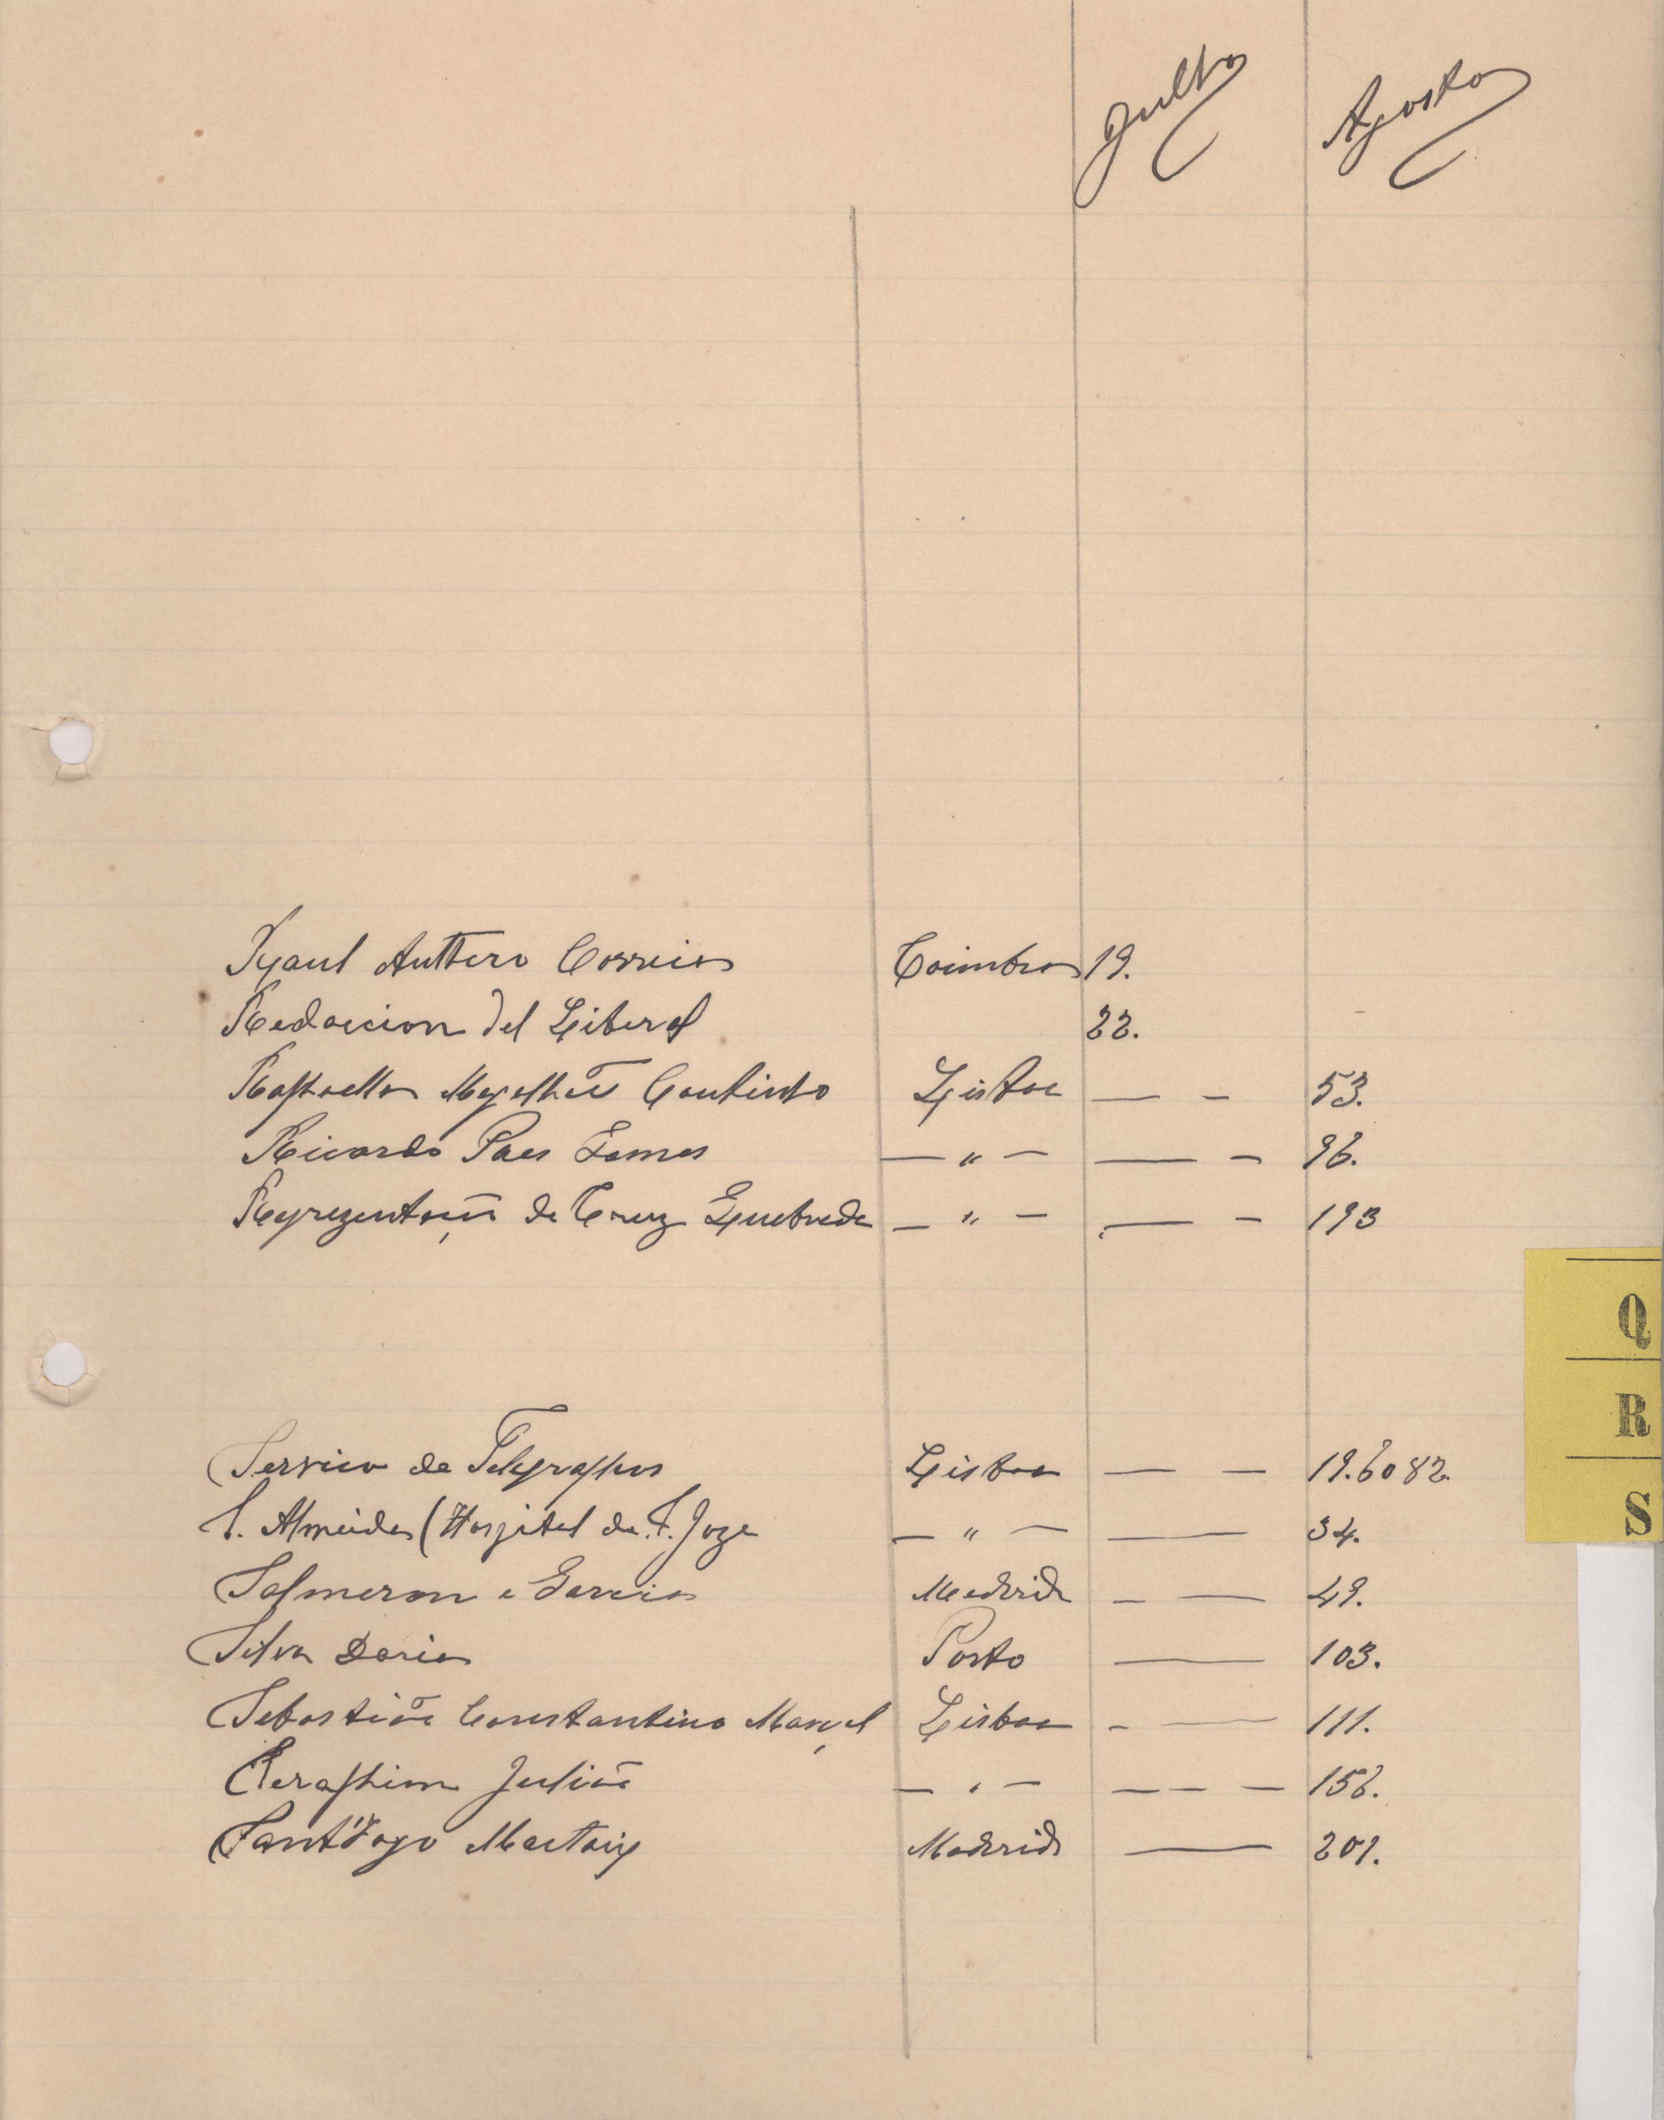 Julho Agosto
Raul Anthero Correia Coimbra 19.
Redaccion del Liberal 22.
Raphaello Magalhães Coutinho Lisboa — - 53.
Ricardo Paes Gomes — " — — - 96.
Reprezentação da Cruz Quebrada — " — — - 193
Q
R
Servico de Telegraphos Lisboa — — 19.60 82.
S
S. Almeida (Hospital de S. Joze — " — — 34.
Salmeron e Garcia Madrid - — 49.
Silva Doria Porto — 103.
Sebastião Constantino Marçal Lisboa - — 111.
Seraphim Julião — " — — — — 156.
Sant'Iago Madrid — 201.